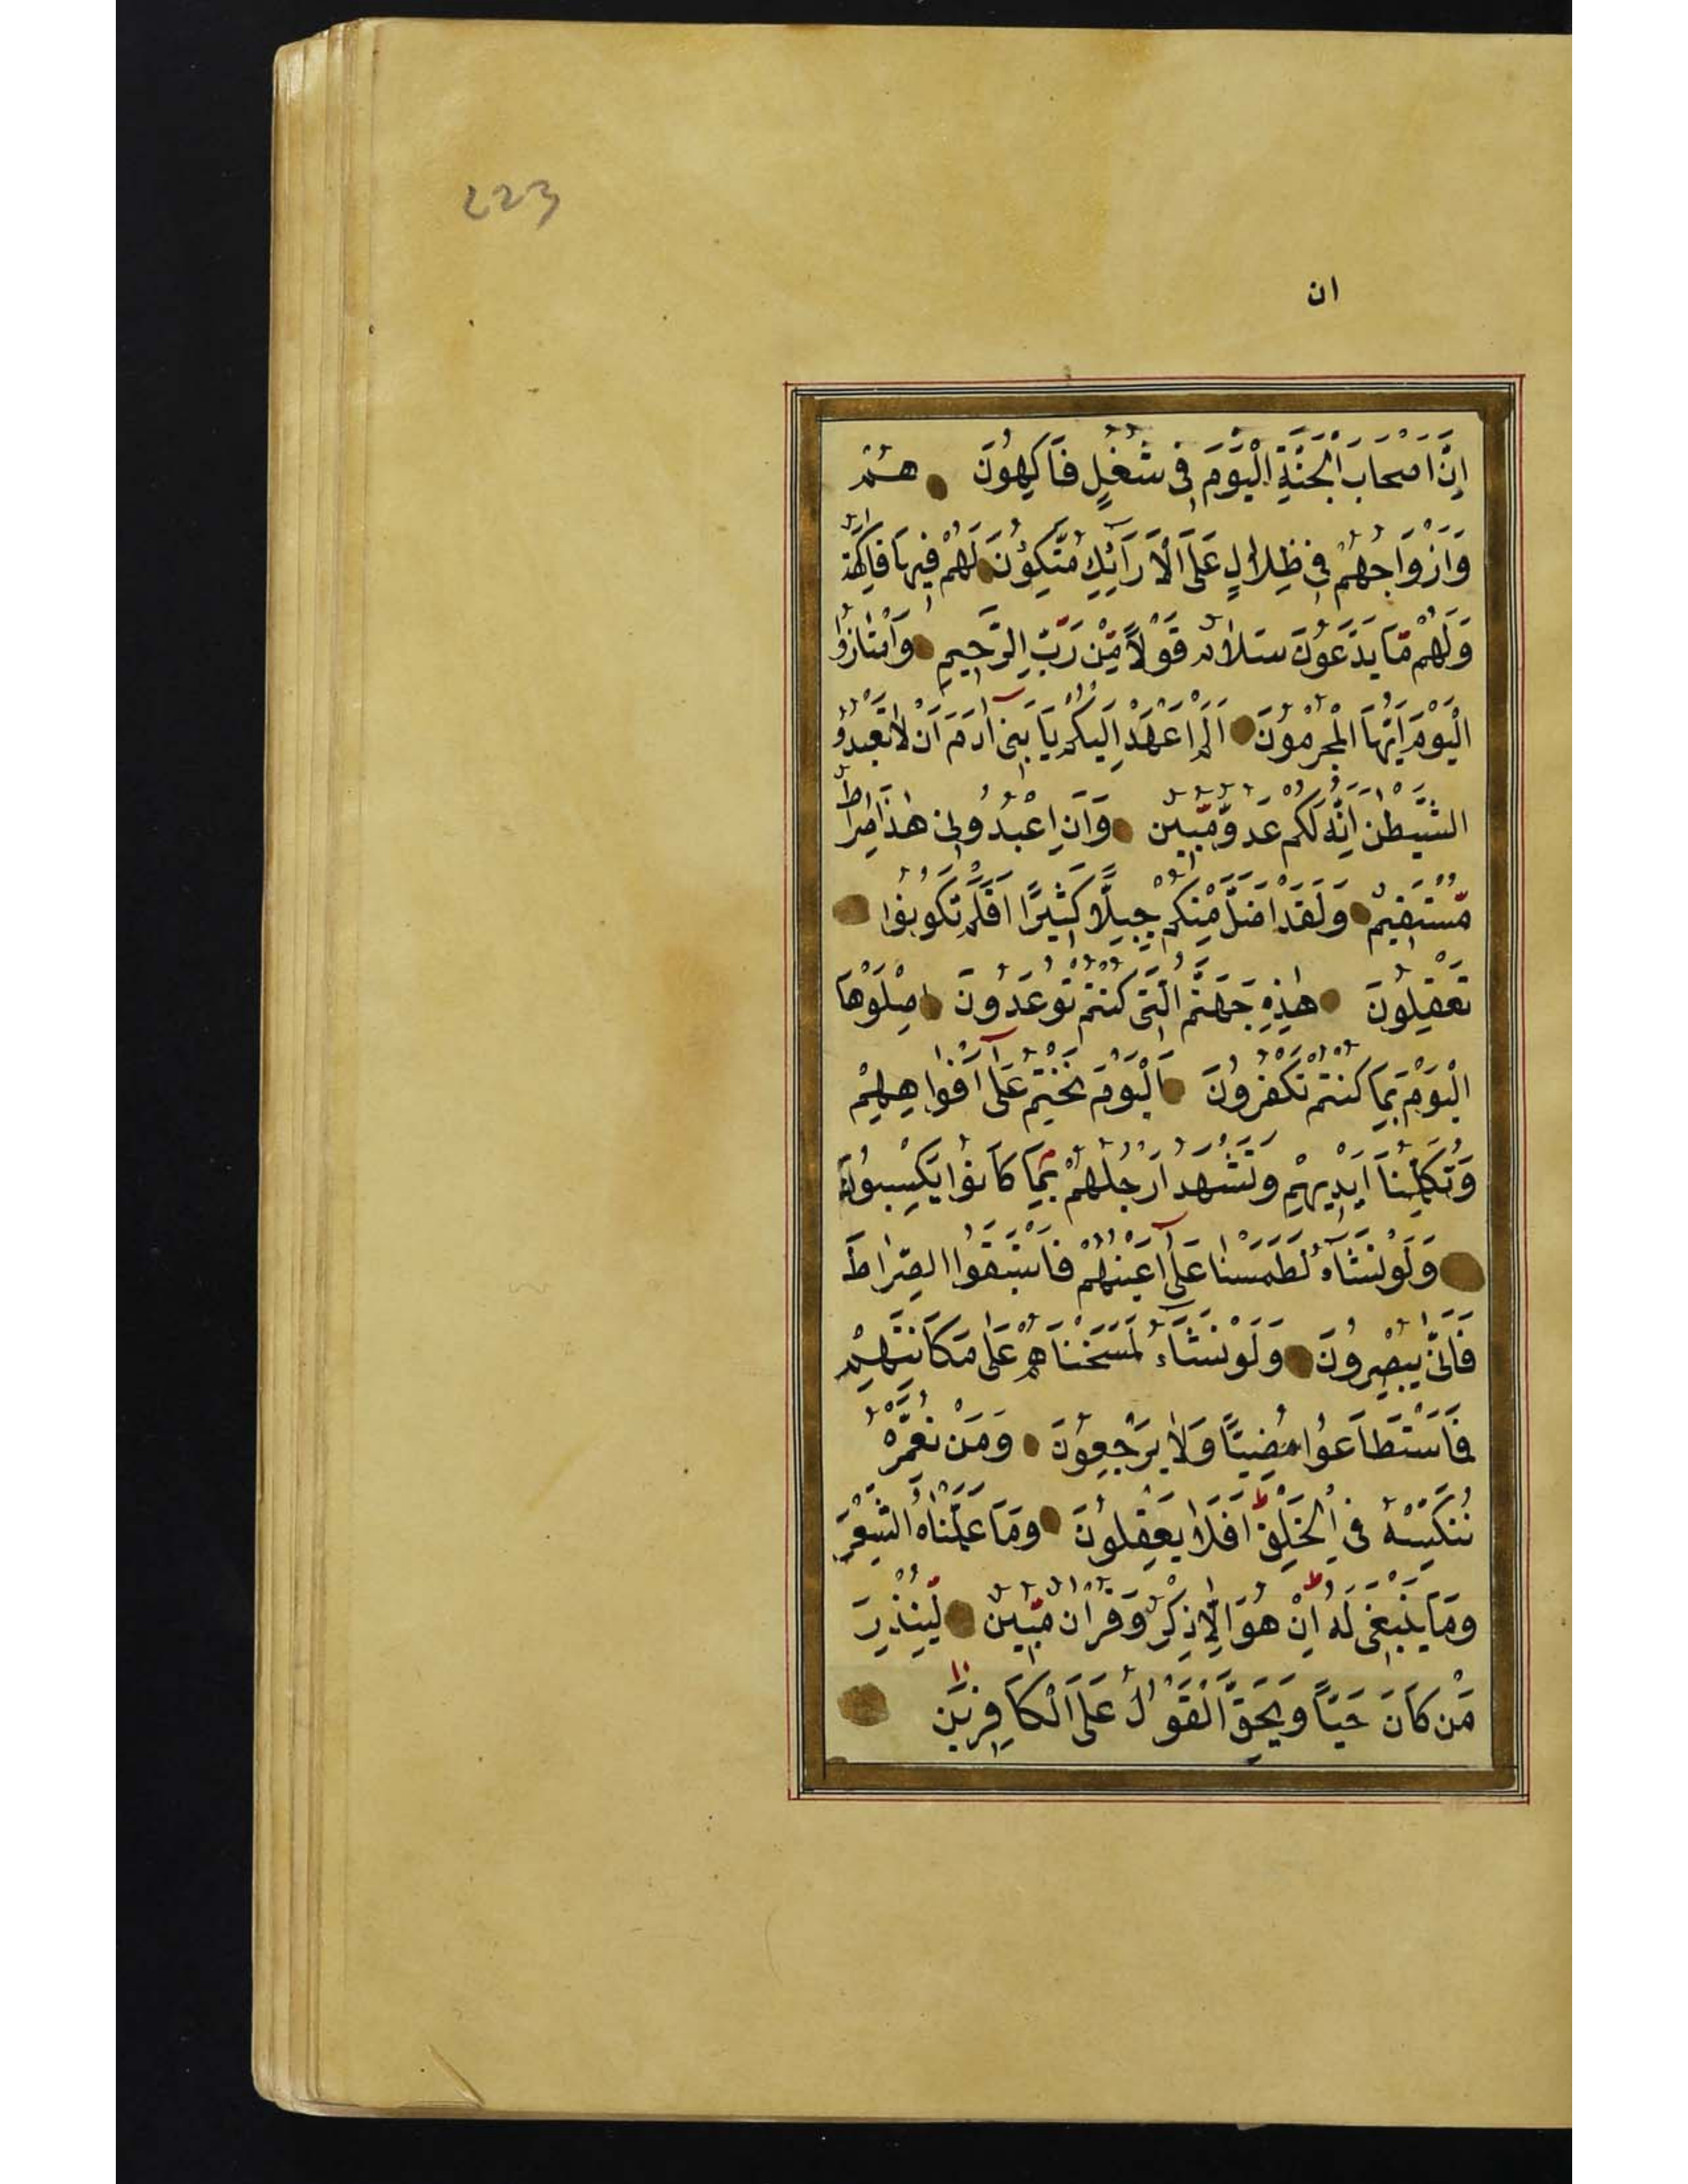 223
ان
اِنَّ اَصْحَابَ الْجَنَّةِ الْيَوْمَ فِي شُغُلٍ فَاكِهُونَ هُمْ
وَاَزْوَاجُهُمْ فِي ظِلَالٍ عَلَى الْاَرَآئِكِ مُتَّكِؤُنَ لَهُمْ فِيهَا فَاكِهَةٌ
وَلَهُمْ مَّا يَدَّعُونَ سَلَامٌ قَوْلًا مِّنْ رَبٍّ الرَّحِيمِ وَامْتَازُوا
الْيَوْمَ اَيُّهَا الْمُجْرِمُونَ اَلَمْ اَعْهَدْ اِلَيْكُمْ يَا بَنِي آدَمَ اَنْ لَا تَعْبُدُوا
الشَّيْطٰنَ اِنَّهُ لَكُمْ عَدُوٌّ مُّبِينٌ وَاَنِ اعْبُدُونِي هٰذَا صِرَاطٌ
مُّسْتَقِيمٌ وَلَقَدْ اَضَلَّ مِنْكُمْ جِبِلًّا كَثِيرًا اَفَلَمْ تَكُونُوا
تَعْقِلُونَ هٰذِهِ جَهَنَّمُ الَّتِي كُنْتُمْ تُوعَدُونَ اصْلَوْهَا
الْيَوْمَ بِمَا كُنْتُمْ تَكْفُرُونَ اَلْيَوْمَ نَخْتِمُ عَلَى اَفْوَاهِهِمْ
وَتُكَلِّمُنَا اَيْدِيهِمْ وَتَشْهَدُ اَرْجُلُهُمْ بِمَا كَانُوا يَكْسِبُونَ
وَلَوْ نَشَآءُ لَطَمَسْنَا عَلَى اَعْيُنِهِمْ فَاسْتَبَقُوا الصِّرَاطَ
فَاَنّٰى يُبْصِرُونَ وَلَوْ نَشَآءُ لَمَسَخْنَاهُمْ عَلٰى مَكَانَتِهِمْ
فَمَا اسْتَطَاعُوا مُضِيًّا وَلَا يَرْجِعُونَ وَمَنْ نُعَمِّرْهُ
نُنَكِّسْهُ فِي الْخَلْقِ اَفَلَا يَعْقِلُونَ وَمَا عَلَّمْنَاهُ الشِّعْرَ
وَمَا يَنْبَغِي لَهُ اِنْ هُوَ اِلَّا ذِكْرٌ وَقُرْاٰنٌ مُّبِينٌ لِّيُنْذِرَ
مَنْ كَانَ حَيًّا وَيَحِقَّ الْقَوْلُ عَلَى الْكَافِرِينَ